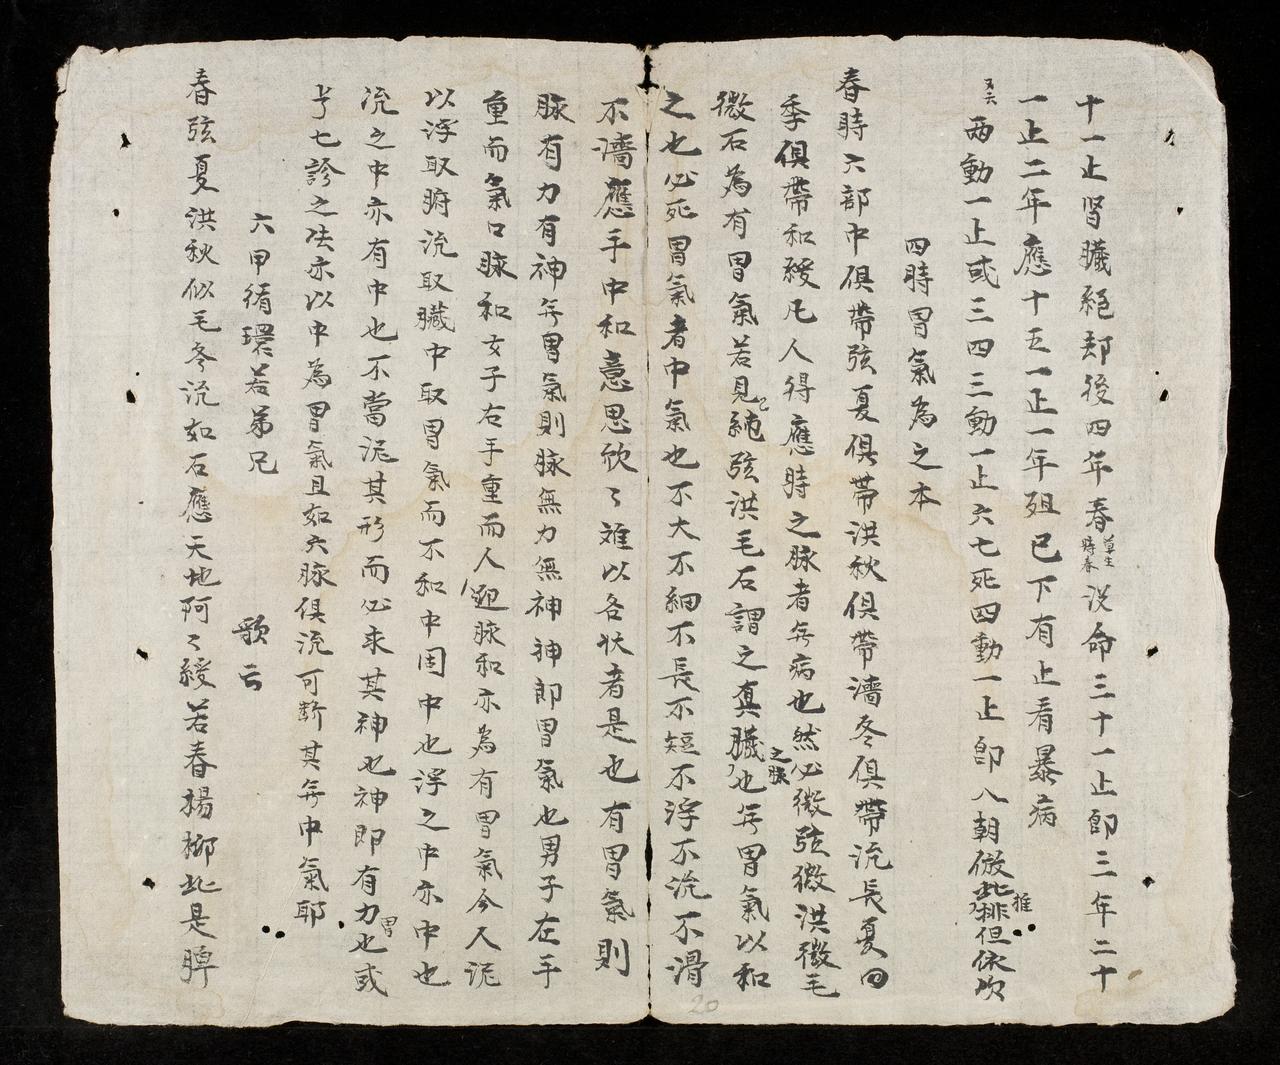 十一止腎臟絕却後四年春草生時春没命三十一止即三年二十
一止二年應十五一止一年殂已下有止看暴病
又云兩動一止或三四三動一止六七死四動一止即八朝倣此推排但依次
四時胃氣為之本
春時六部中俱帶弦夏俱帶洪秋俱帶濇冬俱帶沉長夏四
季俱帶和緩凡人得應時之脉者無病也然必微弦微洪微毛
微石為有胃氣若見純弦洪毛石謂之真臟之脉也無胃氣以和
之也必死胃氣者中氣也不大不細不長不短不浮不沉不滑
不濇應手中和意思欣々难以名狀者是也有胃氣則
脉有力有神無胃氣則脉無力無神神即胃氣也男子左手
重而氣口脉和女子右手重而人迎脉和亦為有胃氣今人泥
以浮取腑沉取臟中取胃氣而不和中固中也浮之中亦中也
沉之中亦有中也不當泥其形而必求其神也神即有胃力也或
七診之法亦以中為胃氣且如六脉俱沉可斷其無中氣耶
六甲循環若弟兄 歌云
春弦夏洪秋似毛冬沉如石應天地阿々緩若春楊柳此是脾
20